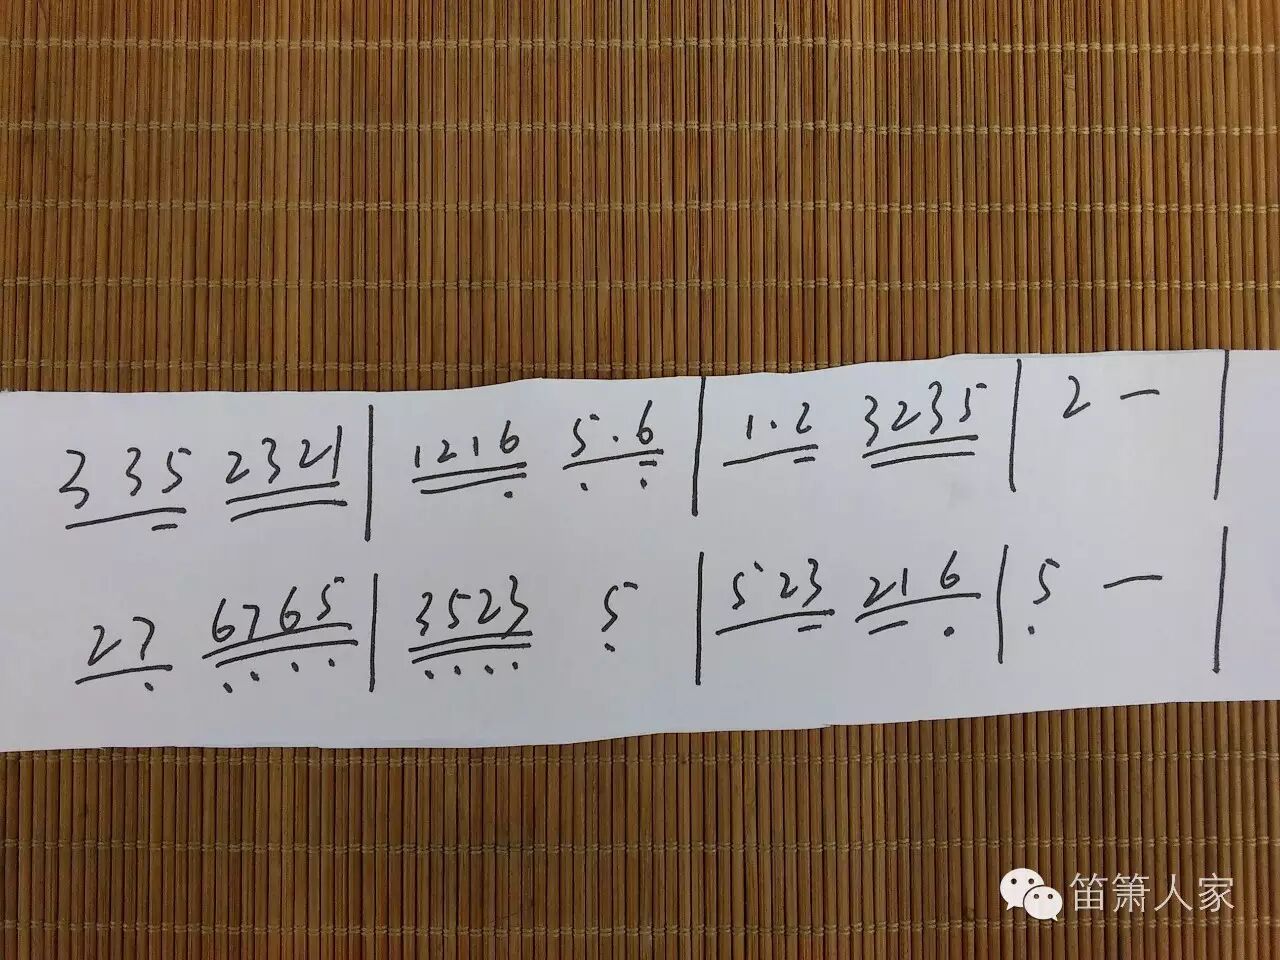 3 35 2321 | 1216 5.6 | 1.2 3235 | 2 — |
27 6765 | 3523 5 | 523 216 | 5 — |
笛箫人家